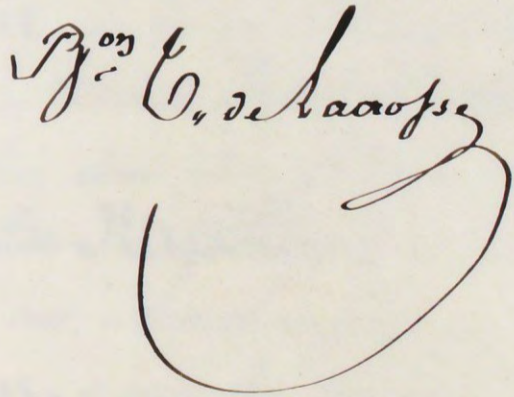 Bᵒⁿ T. de Lacrosse